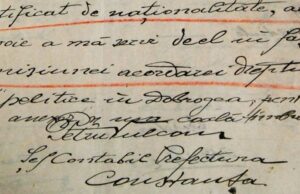 tificat de naționalitate, a
voie a mă servi de el în fa
misiunei acordarei dreptu
politice în Dobrogea, pen
anex
Petru Vulcan
Șef Contabil Prefectura
Constanța